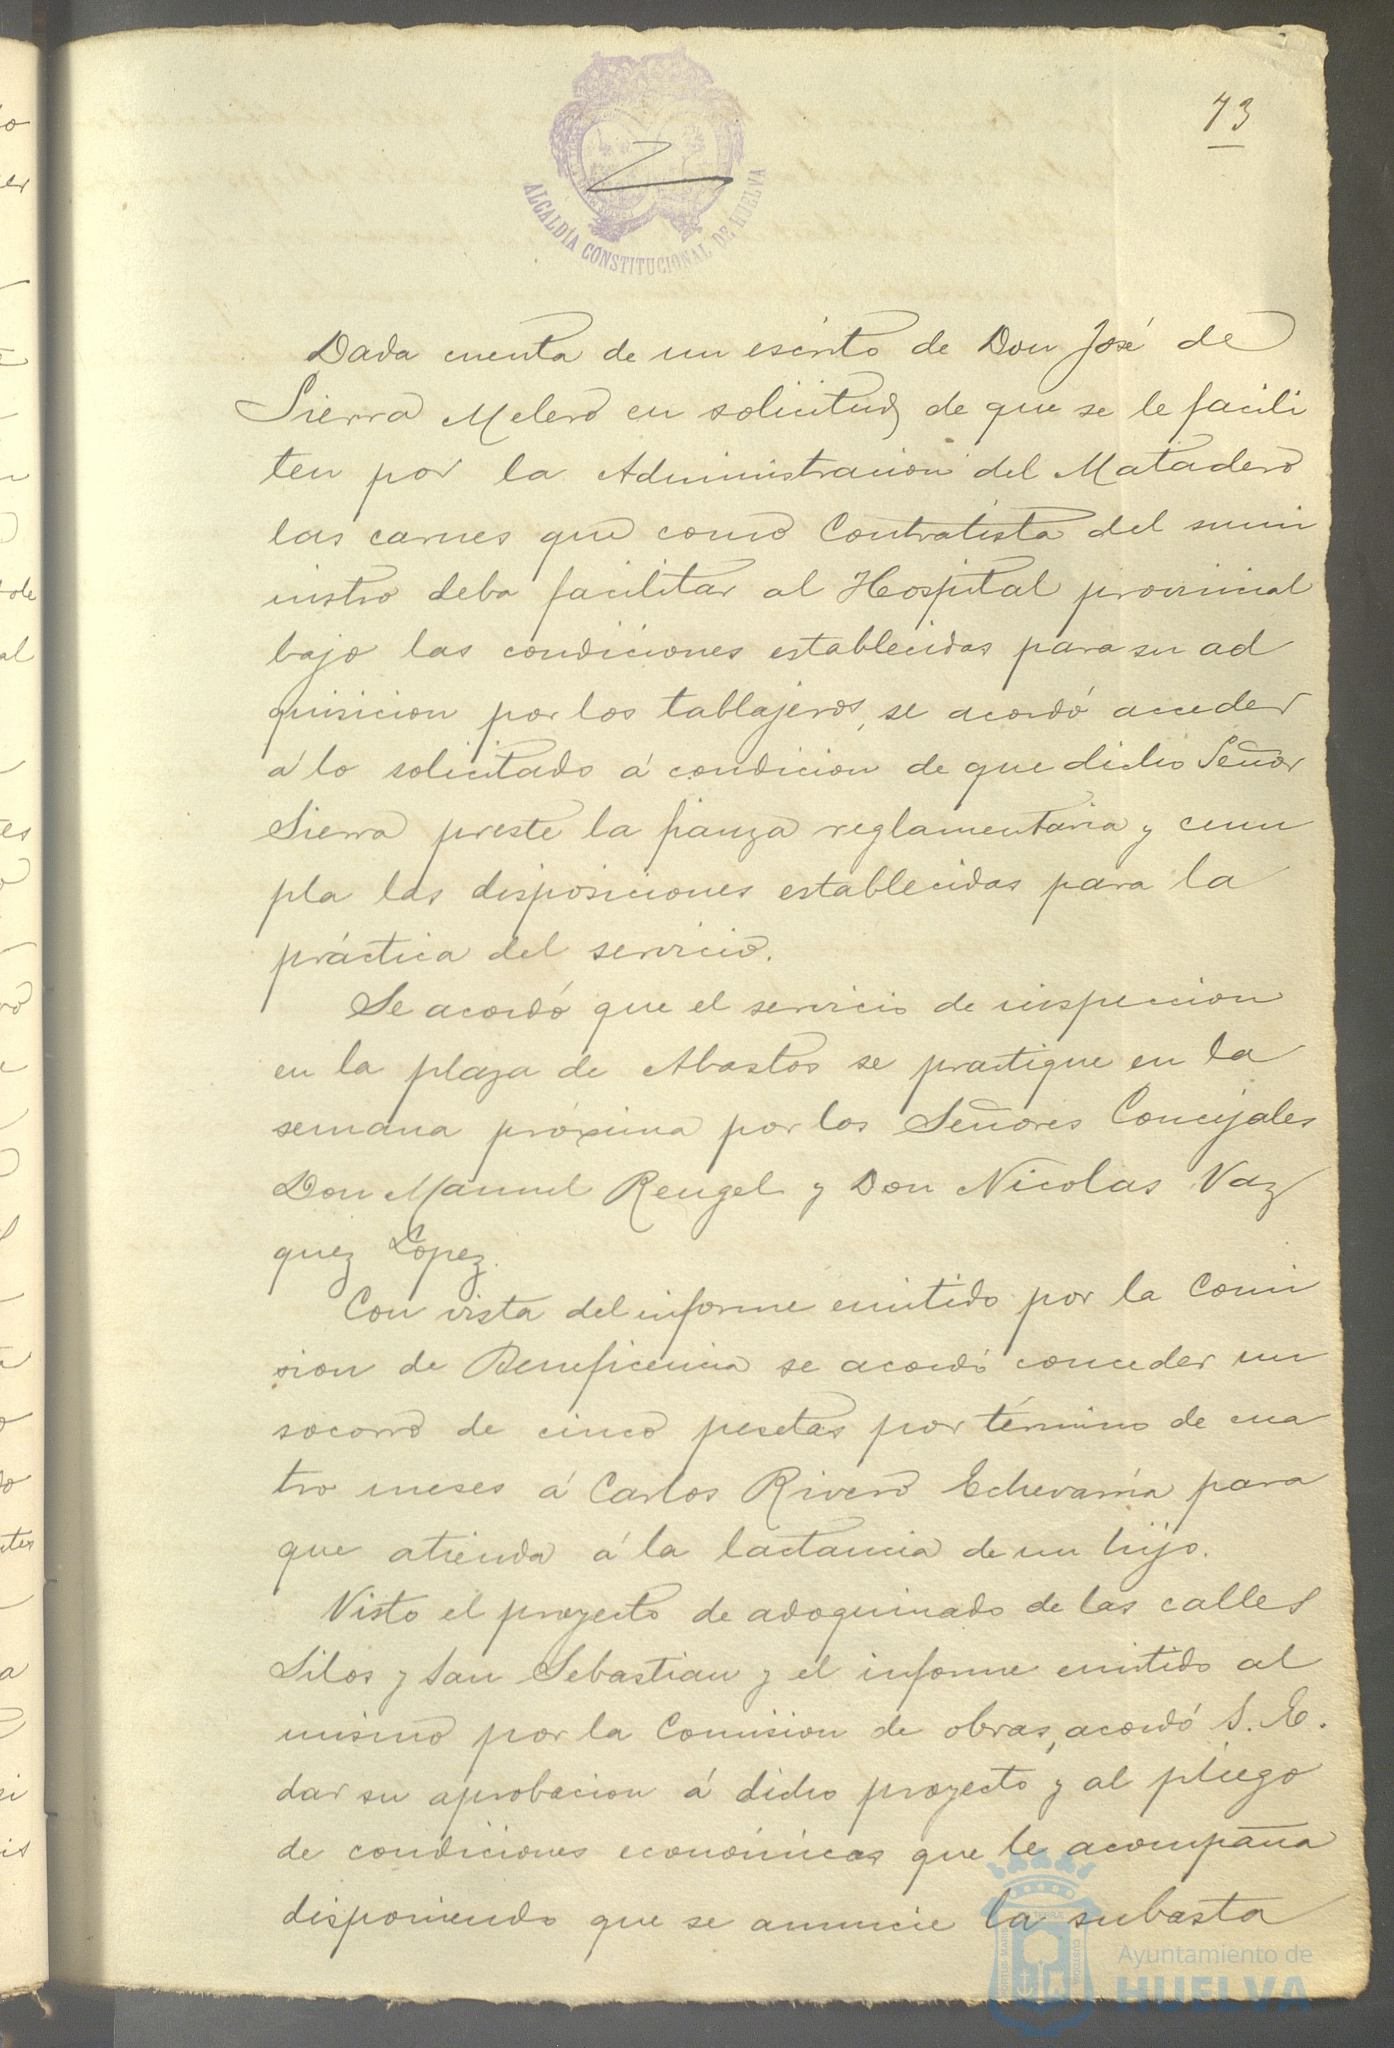 73
ALCALDÍA CONSTITUCIONAL DE HUELVA
Dada cuenta de un escrito de Don José de
Sierra Melero en solicitud de que se le facili
ten por la Administracion del Matadero
las carnes que como Contratista del sumi
nistro deba facilitar al Hospital provincial
bajo las condiciones establecidas para su ad
quisicion por los tablajeros, se acordó acceder
á lo solicitado á condicion de que dicho Señor
Sierra preste la fianza reglamentaria y cum
pla las disposiciones establecidas para la
práctica del servicio.
Se acordó que el servicio de inspeccion
en la plaza de Abastos se practique en la
semana próxima por los Señores Concejales
Don Manuel Rengel y Don Nicolas Vaz
quez Lopez.
Con vista del informe emitido por la Comi
sion de Beneficencia se acordó conceder un
socorro de cinco pesetas por término de cua
tro meses á Carlos Rivero Echevarría para
que atienda á la lactancia de un hijo.
Visto el proyecto de adoquinado de las calles
Silos y San Sebastian y el informe emitido al
mismo por la Comision de obras, acordó S. E.
dar su aprobacion á dicho proyecto y al pliego
de condiciones económicas que le acompaña
disponiendo que se anuncie la subasta
Ayuntamiento de
HUELVA